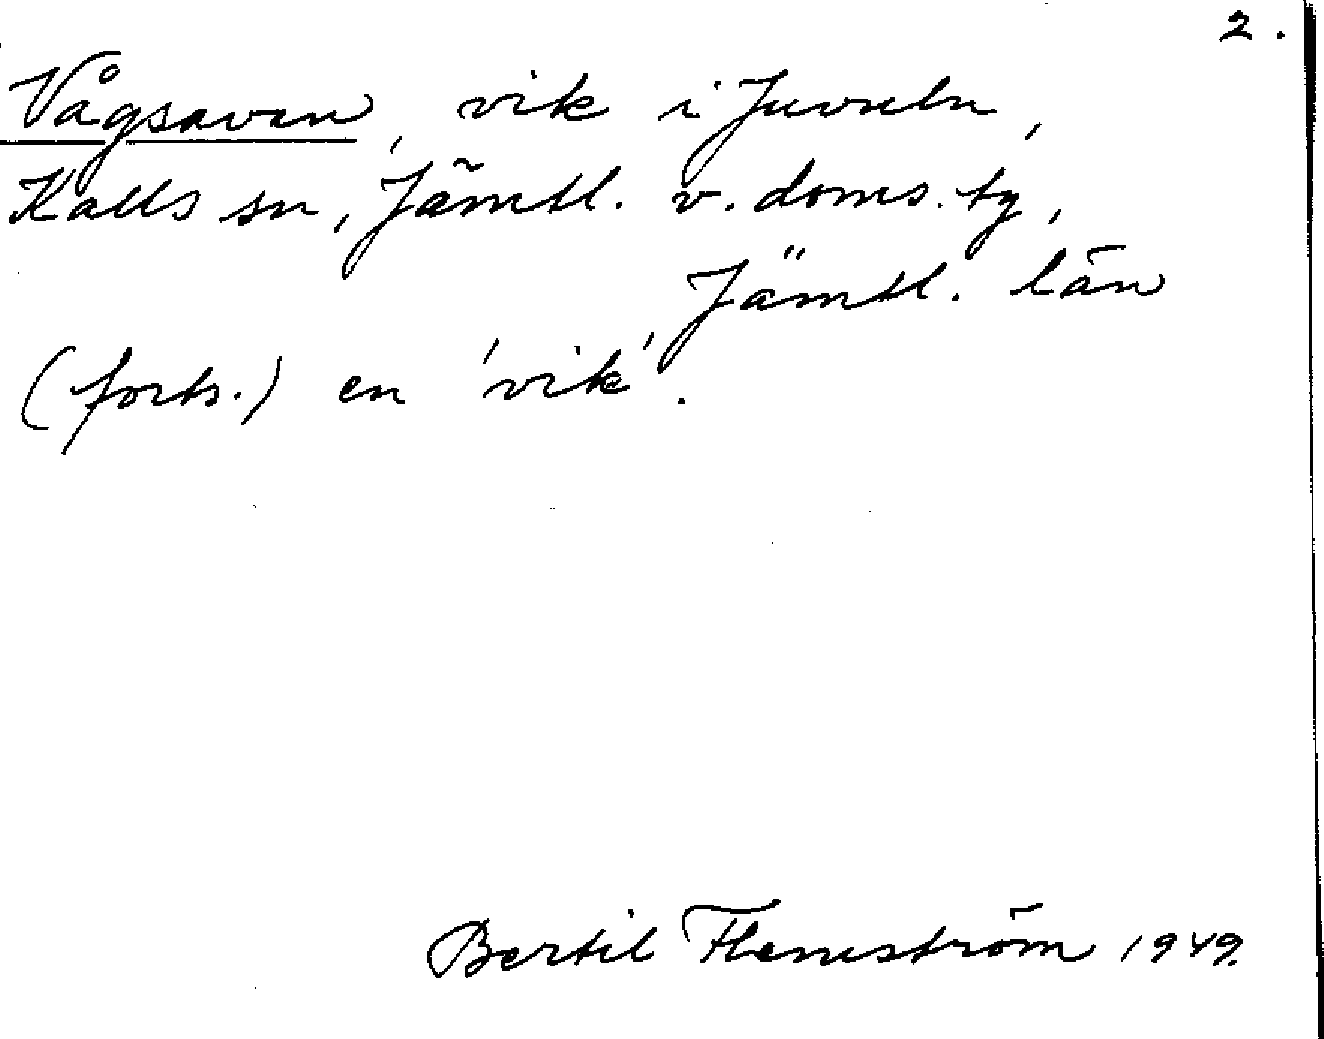 2.
Vågsaven, vik i Juveln,
Kalls sn, Jämtl. v. doms. tg,
Jämtl. län
(forts.) en 'vik'.
Bertil Flemström 1949.